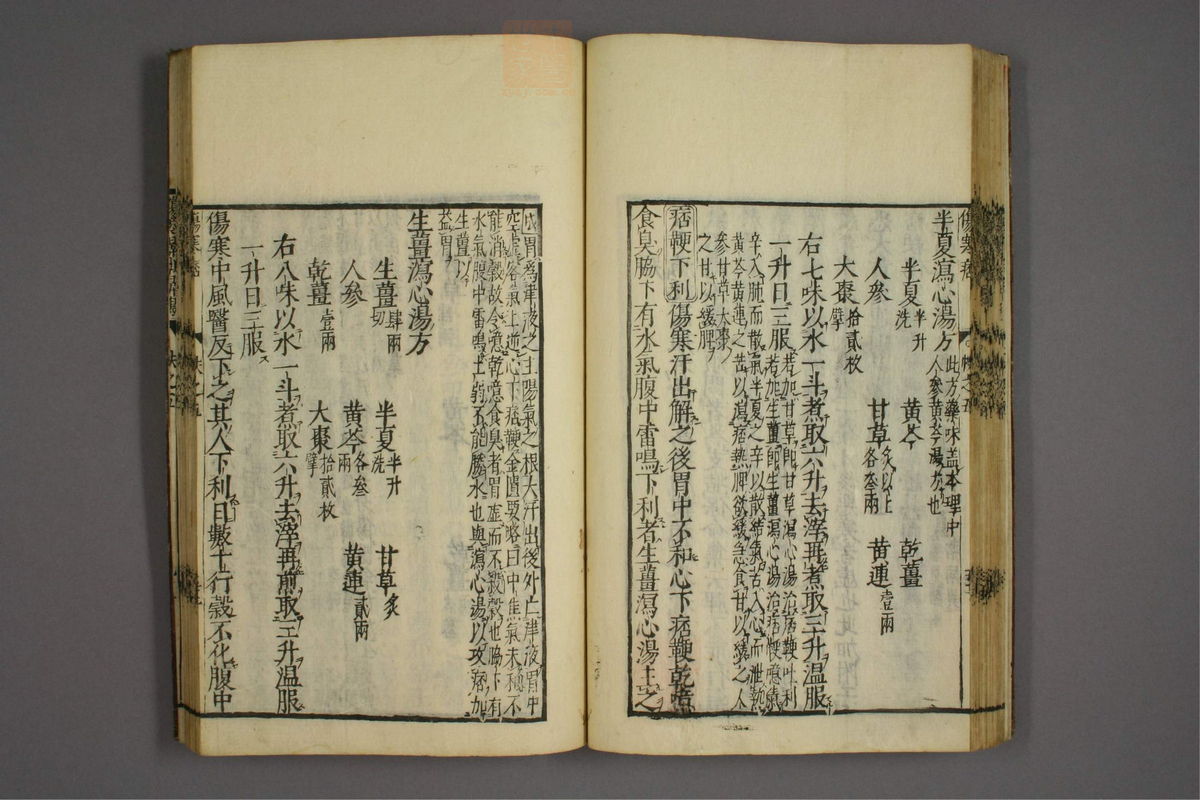 半夏瀉心湯方 此方藥味盖本理中
人參黃芩湯方也
半夏半升洗 黃芩 乾薑
人參 甘草炙以上各叁兩 黃連壹兩
大棗拾貳枚擘
右七味以水一斗煮取六升去滓再煮取三升温服
一升日三服 若加甘草卽甘草瀉心湯治痞鞕吐利
若加生薑卽生薑瀉心湯治痞
辛入肺而散氣半夏之辛以散結氣苦入心而泄熱
黃芩黃連之苦以瀉痞熱脾欲緩急食甘以緩之人
參甘草大棗
之甘以緩脾
痞鞕下利傷寒汗出解之後胃中不和心下痞鞕乾噫
食臭脇下有水氣腹中雷鳴下利者生薑瀉心湯主之
成胃爲津液之主陽氣之根大汗出後外亡津液胃中
空虛客氣上逆心下痞鞕金匱要略曰中焦氣未和不
能消穀故令噫乾噫食臭者胃虛而不殺穀也脇下有
水氣腹中雷鳴土弱不能勝水也與瀉心湯以攻痞加
生薑以
益胃
生薑瀉心湯方
生薑肆兩切 半夏半升洗 甘草炙
人參 黃芩各叁兩 黃連貳兩
乾薑壹兩 大棗拾貳枚擘
右八味以水一斗煮取六升去滓再煎取三升温服
一升日三服
傷寒中風醫反下之其人下利日數十行穀不化腹中